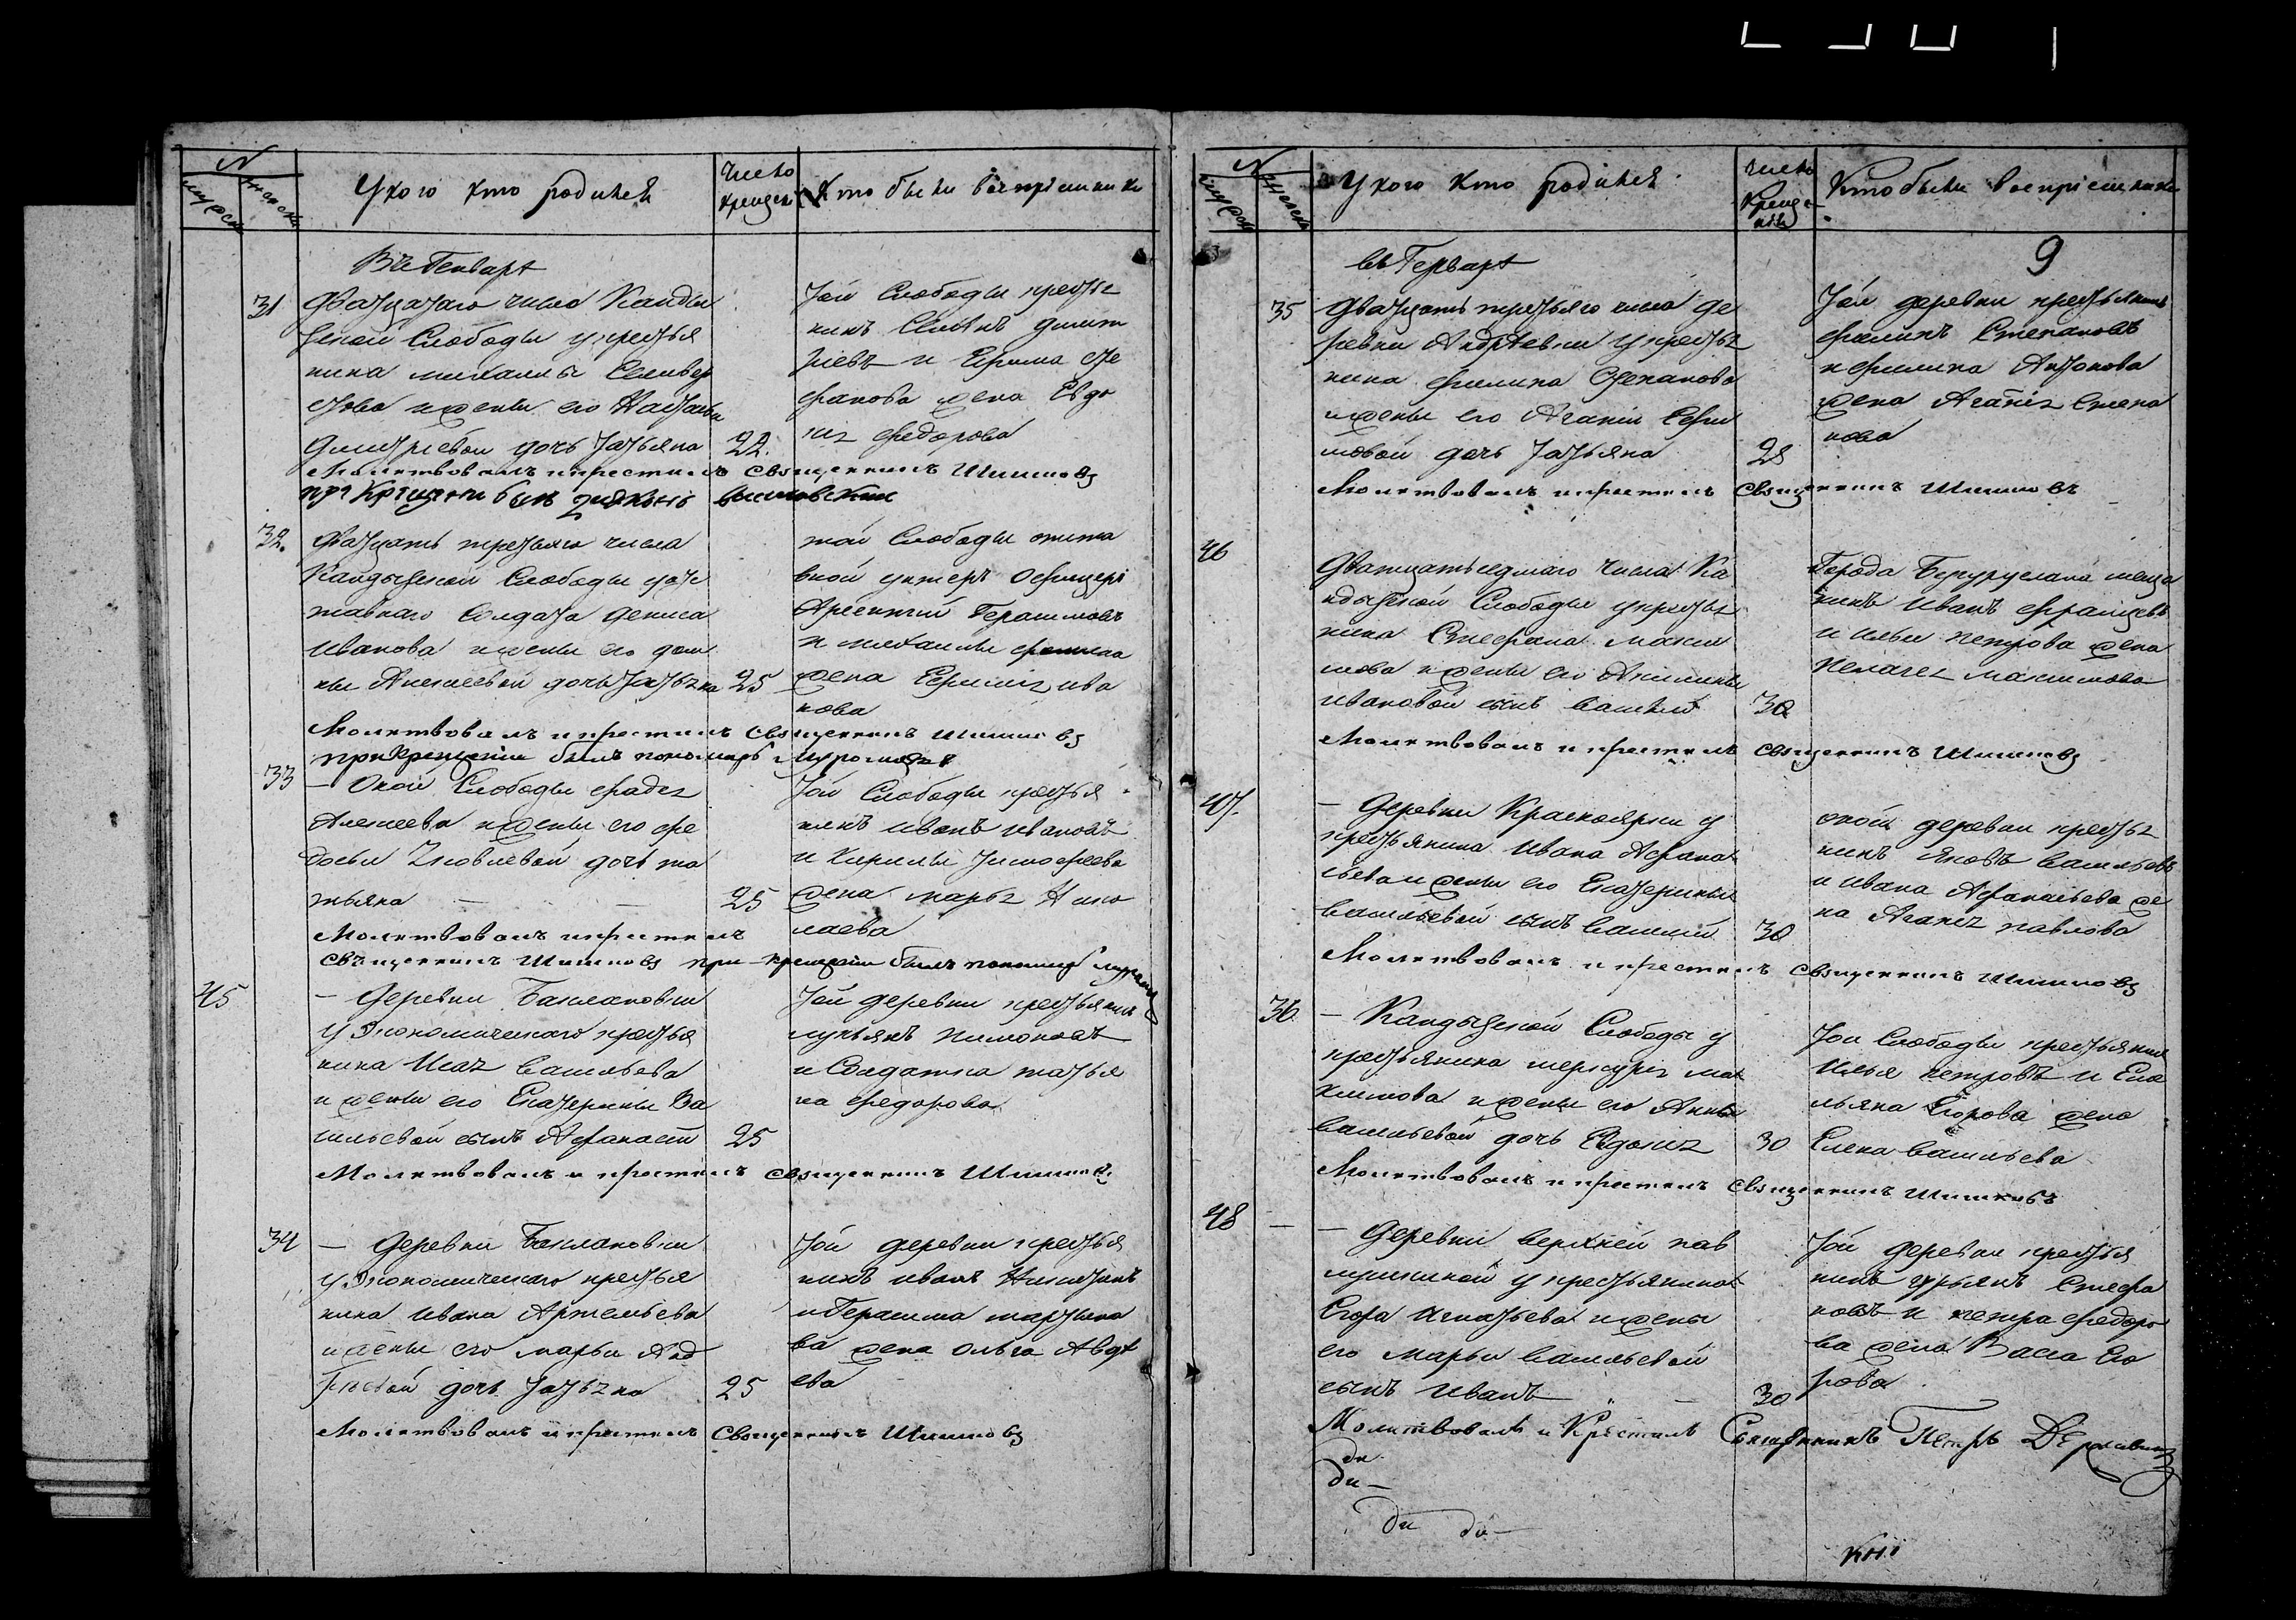 №
мужеска
женска
У кого кто родился
Число крещен
Кто были восприемники
Въ Генварѣ
31
Двадцатаго числа Канды
зской Слободы у крестья
нина Михаилы Селивер
стова и жены его Натальи
Дмитріевой дочь Татьяна
22.
Той Слободы крестья
нинъ Дмит
ріевъ и Ефима Сте
фанова жена Евдо
кія Федорова
Молитвовалъ и крестилъ священникъ Шишковъ
при крещеніи былъ дьяконъ
32.
Двадцать третьяго числа
Кандызской Слободы у отс
тавнаго Солдата Дениса
Иванова и жены его Дом
ны Алексеевой дочь Татьяна
25
той Слободы отста
вной унтеръ офицеръ
Арсентій Герасимовъ
и Михаилы
жена Ефимія Ива
нова
Молитвовалъ и крестилъ священникъ Шишковъ
при крещеніи былъ пономарь
33
— Оной Слободы Фадея
Алексеева и жены его Фе
досьи Яковлевой дочь Та
тьяна — —
25
Той Слободы крестья
нинъ Иванъ Ивановъ
и Кирилы Тимофеева
жена Марья Нико
лаева
Молитвовалъ и крестилъ
священникъ Шишковъ при крещеніи былъ пономарь
45
— Деревни Баклановки
у Экономическаго крестья
нина Исая Васильева
и жены его Екатерины Ва
сильевой сынъ Афанасій
25
Той деревни крестьянинъ
Лукьянъ Пимоновъ
и Солдатка Татья
на Федорова
Молитвовалъ и крестилъ священникъ Шишковъ
34
— Деревни Баклановки
у Экономическаго крестья
нина Ивана Артемьева
и жены его Марьи Анд
реевой дочь Татьяна
25
Той деревни крестья
нинъ Иванъ Никитинъ
и Герасима Мартыно
ва жена Ольга Авдѣ
ева
Молитвовалъ и крестилъ священникъ Шишковъ
№
мужеска
женска
У кого кто родился
число Креще-
нія
Кто были восприемники
9
въ Генварѣ
35
Двадцать третьяго числа де
ревни Андреевки у крестья
нина Филипа Степанова
и жены его Агафіи Ефи
мовой дочь Татьяна
25
Той деревни крестьянинъ
Филипъ Степановъ
и Филипа Антонова
жена Агафія Степа
нова
Молитвовалъ и крестилъ священникъ Шишковъ
46
Двадцать седмаго числа Ка
ндызской Слободы у крестья
нина Стефана Макси
мова и жены его Акилины
Ивановой сынъ Василій
30
Города Бугуруслана меща
нинъ Иванъ
и Ильи Петрова жена
Пелагея Максимова
Молитвовалъ и крестилъ священникъ Шишковъ
47.
— Деревни Красноярки у
крестьянина Ивана Афана
сьева и жены его Екатерины
Васильевой сынъ Василій
30
оной деревни крестья
нинъ Яковъ Васильевъ
и Ивана Афанасьева же
на Агафія Павлова
Молитвовалъ и крестилъ священникъ Шишковъ
36
— Кандызской Слободы у
крестьянина Меркурья Ма
ксимова и жены его Анны
Васильевой дочь Евдокія
30
Той Слободы крестьянинъ
Илья Петровъ и Еме
льяна Егорова жена
Елена Васильева
Молитвовалъ и крестилъ священникъ Шишковъ
48 —
— Деревни Верхней Пав
лушкиной у крестьянина
Егора Игнатьева и жены
его Марьи Васильевой
сынъ Иванъ —
30
Той деревни крестья
нинъ Гурьянъ Стефа
новъ и Петра Федоро
ва жена Васса Его
рова
Молитвовалъ и Крестилъ Священникъ Петръ Державинъ